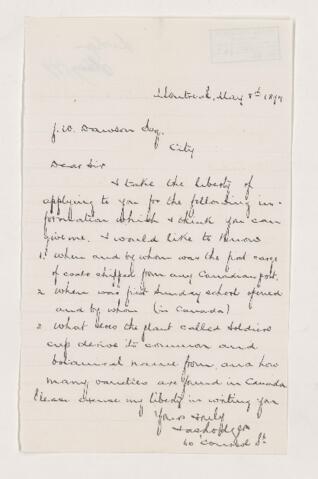 Montreal, May 8th 1897
J. W. Dawson Esq.
City
Dear Sir
I take the liberty of
applying to you for the following in-
formation which I think you can
give me. I would like to know
1. when and by whom was the first cargo
of coals shipped from any Canadian port.
2 When was first Sunday school opened
and by whom (in Canada)
3 What does the plant called Soldiers
cup derive its common and
botanical name from, and how
many varieties are found in Canada
Please excuse my liberty in writing you
Yours truly
St